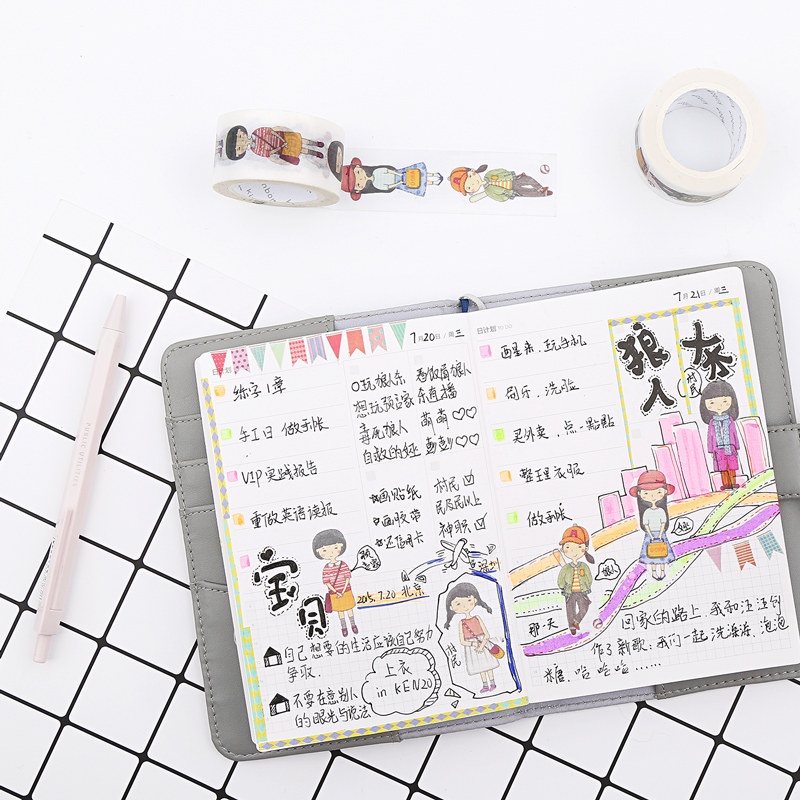 7月20日/周三
日计划
练字1章
手工日 做手帐
VIP实践报告
重做英语读报
玩狼人杀
想玩预言家
毒死狼人
杀直播
萌萌♡♡
画贴纸
画胶带
还信用卡
村民☑
神职☑
宝贝
2015.7.20 北京
自己想要的生活应该自己努力
争取.
不要在意别人
的眼光与说法
上衣
in KENZO
村民
7月21日/周三
日计划
西单来.玩手机
刷乐.洗脸
买外卖.点.點點
整理衣服
做手帐
狼人
杀
村民
狼人
那一天
回家的路上 我和汪汪创
作了新歌:我们一起洗澡澡,泡泡
糖.哈哈哈……